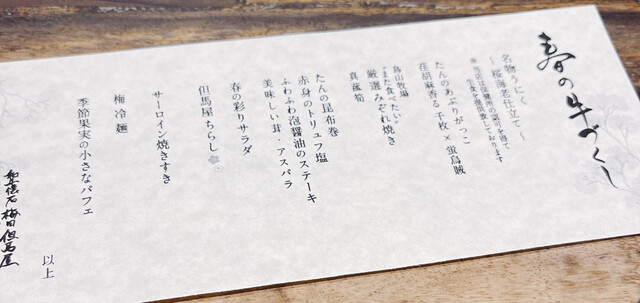 春の牛づくし
名物うにく
～桜海老仕立て～
※当店は保健所の認可を得て
生食を提供致しております
たんのあぶりがっこ
荏胡麻香る 千枚×蛍烏賊
鳥山牧場
"また食べたい"
厳選みぞれ焼き
真菰筍
たんの昆布巻
赤身のトリュフ塩
ふわふわ泡醤油のステーキ
美味しい茸・アスパラ
春の彩りサラダ
但馬屋ちらし
サーロイン焼きすき
梅冷麺
季節果実の小さなパフェ
以上
梅田但馬屋